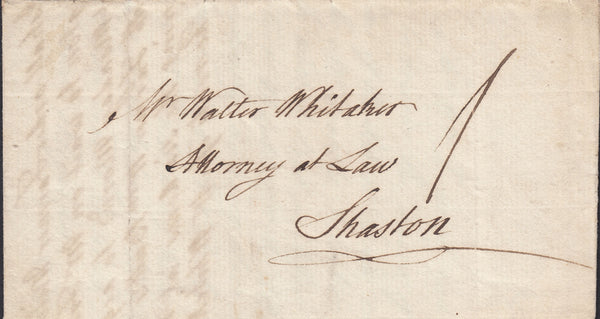 Mr Walter Whitaker
Attorney at Law
Shaston
1